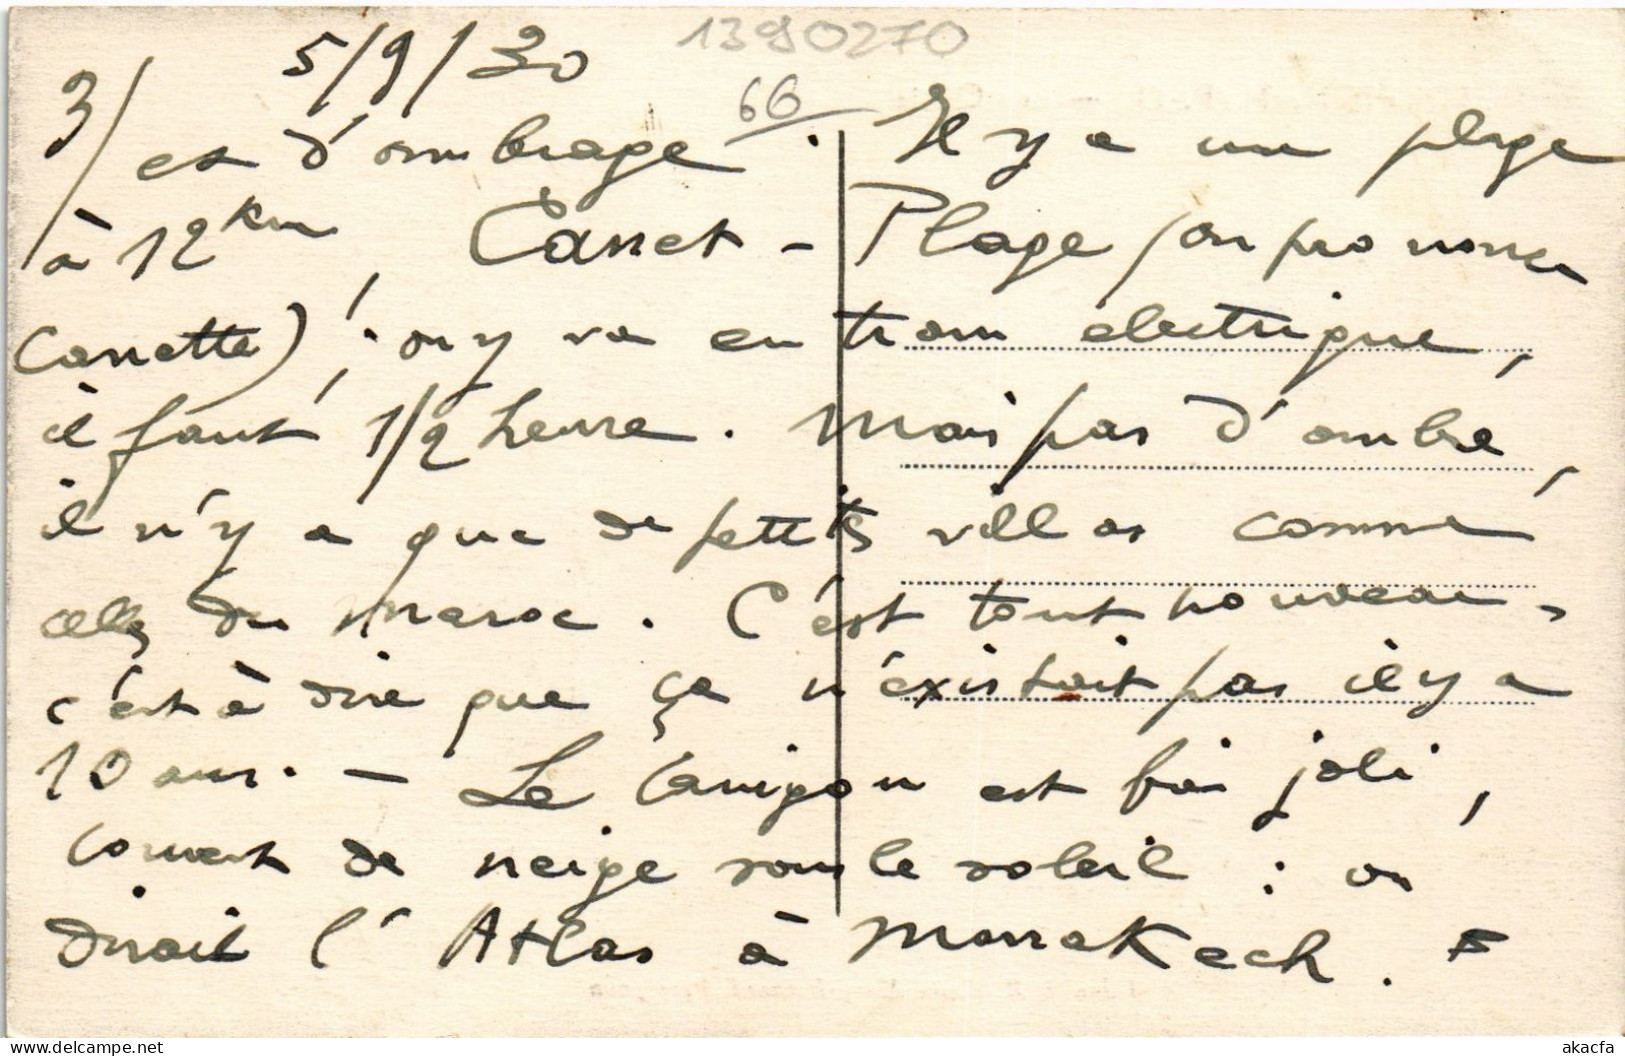 1390270
5/9/30
66
3/
et d'ombrage. Il y a une plage
à 12 km Canet - Plage (on prononce
Canette) ; on y va en tram électrique,
il faut 1/2 heure. Mais pas d'ombre,
il n'y a que de petites villas comme
celles du Maroc. C'est tout nouveau,
c'est à dire que ça n'existait pas il y a
10 ans. - Le Canigou est joli,
couvert de neige sous le soleil : on
dirait l'Atlas à Marrakech.
akacfa